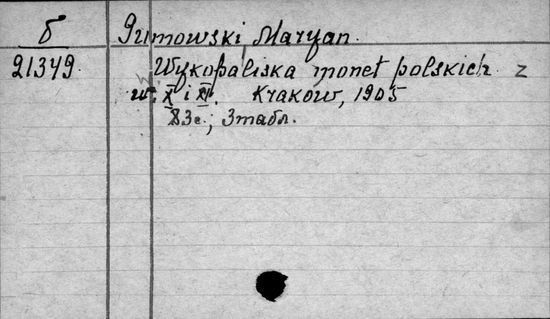 б Gumowski Maryan.
21349 Wykopaliska monet polskich z
w. X i XI. Kraków, 1905
83с.; 3 табл.